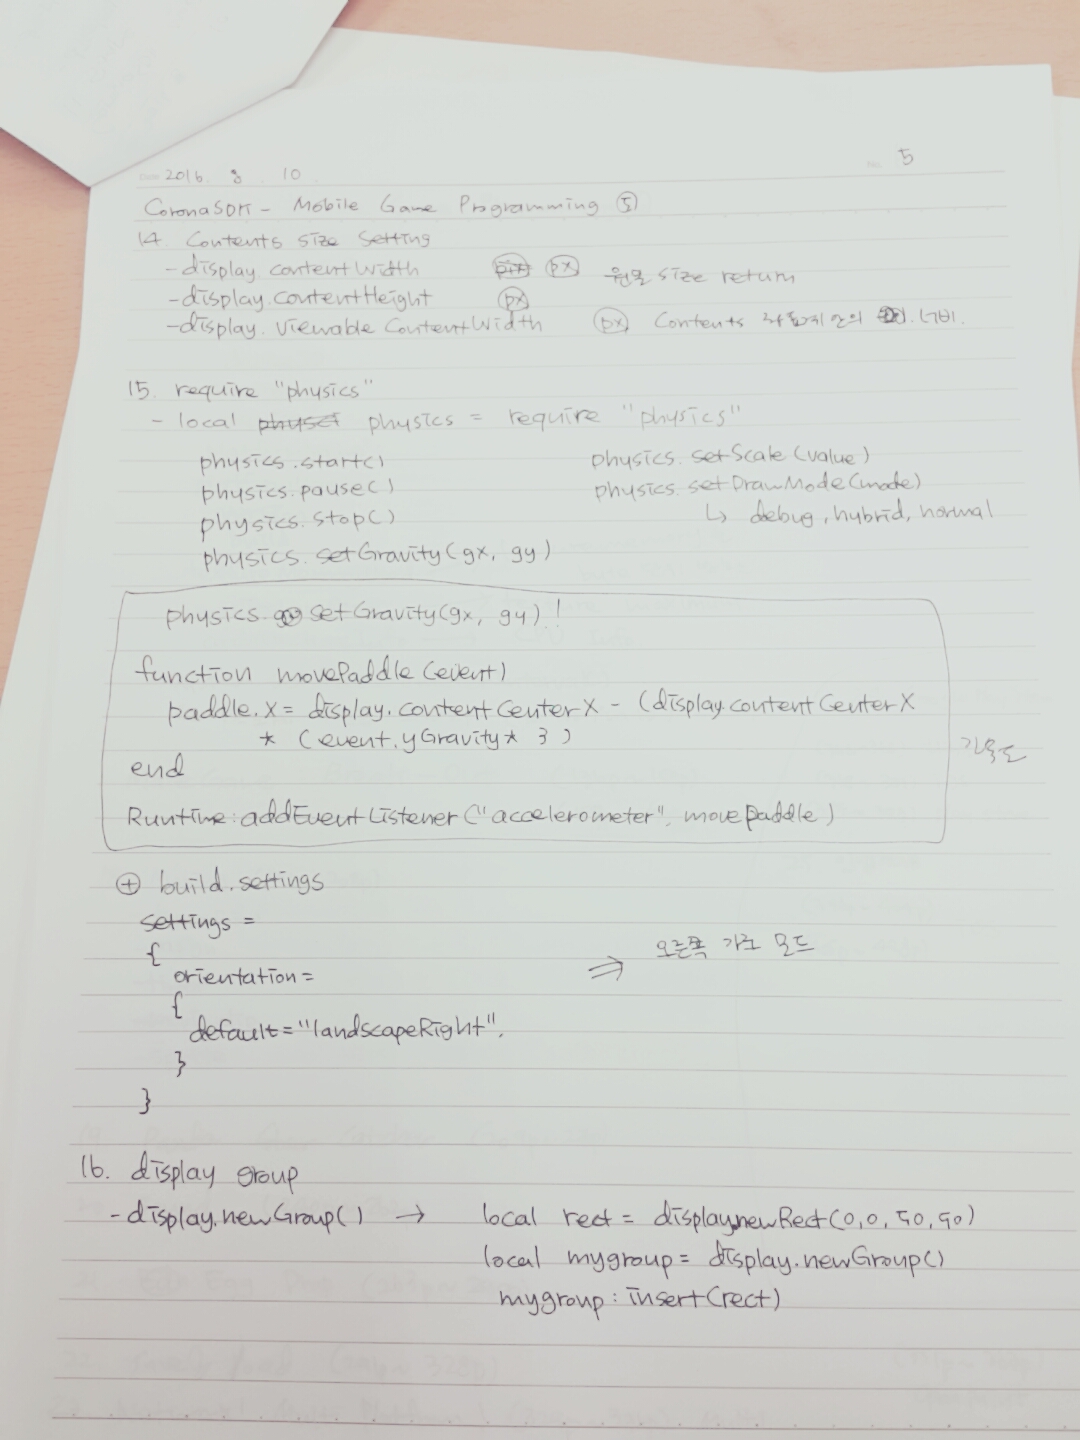 Date 2016. 8. 10. No. 5
CoronaSDK - Mobile Game Programming ⑤
14. Contents size Setting
- display.contentWidth (px) size return
- display.contentHeight (px)
- display.viewableContentWidth (px) Contents 너비.
15. require "physics"
- local physics = require "physics"
physics.start() physics.setScale(value)
physics.pause() physics.setDrawMode(mode)
physics.stop() ↳ debug, hybrid, normal
physics.setGravity(gx, gy)
physics.setGravity(gx, gy)!
function movePaddle(event)
paddle.x = display.contentCenterX - (display.contentCenterX
* (event.yGravity * 3)
end
Runtime:addEventListener("accelerometer", movePaddle)
⊕ build.settings
settings =
{ ⇒ 오른쪽 가로 모드
orientation =
{
default = "landscapeRight",
}
}
16. display group
- display.newGroup() → local rect = display.newRect(0,0,50,50)
local mygroup = display.newGroup()
mygroup:insert(rect)